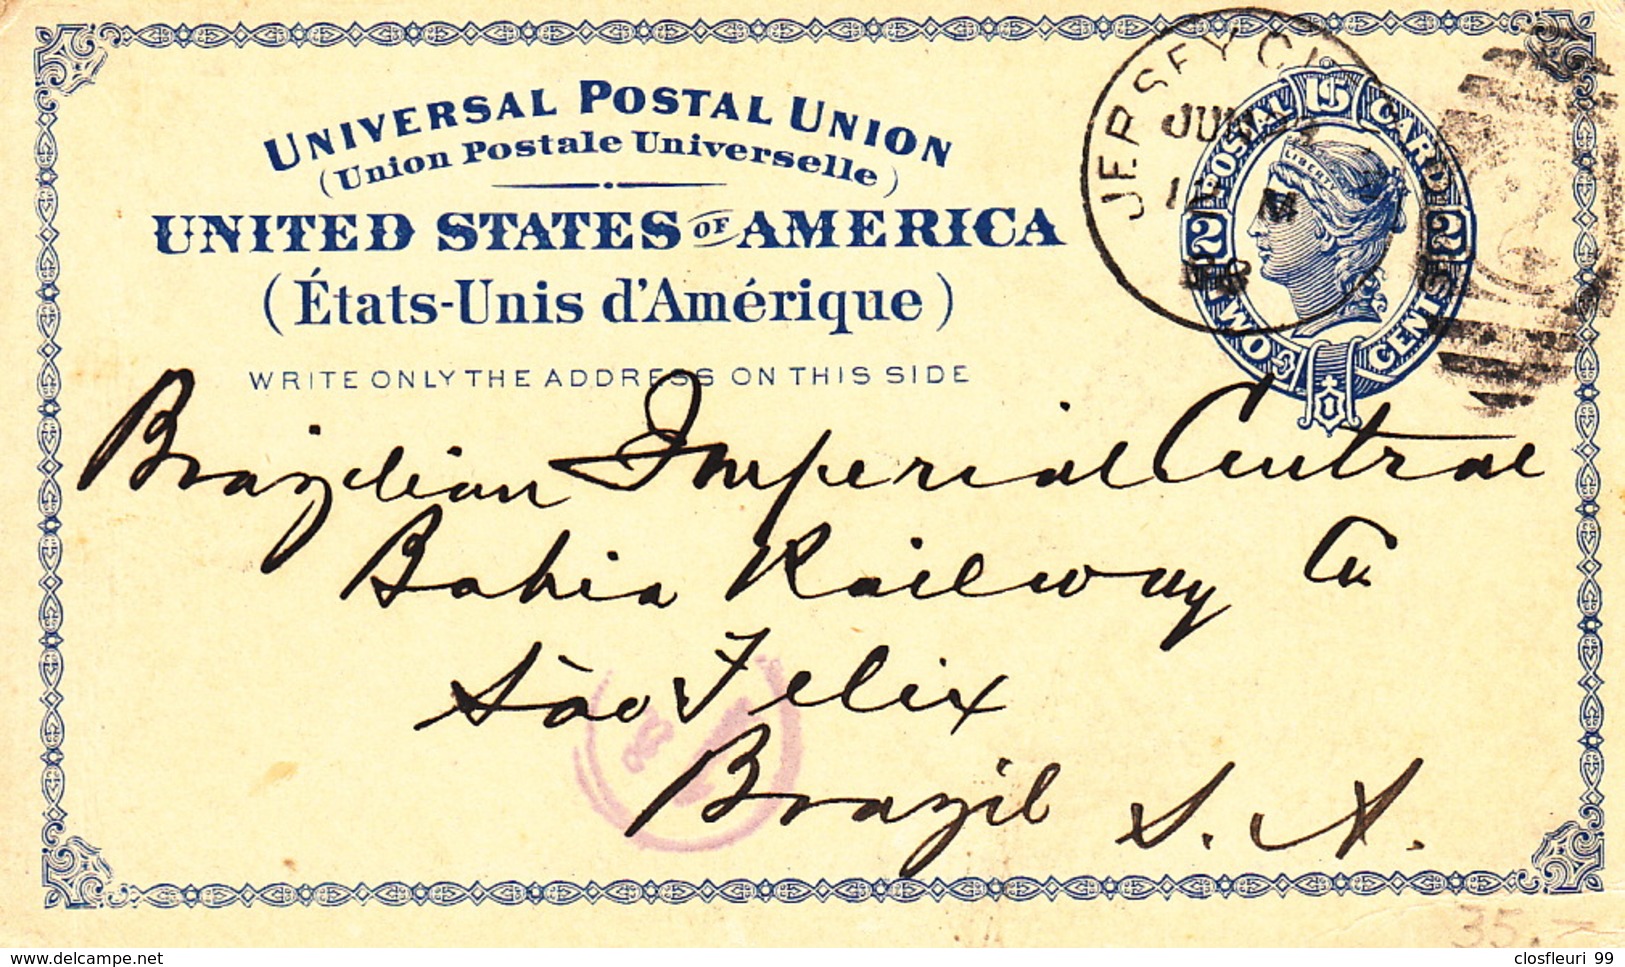 UNIVERSAL POSTAL UNION
(Union Postale Universelle)
UNITED STATES OF AMERICA
(États-Unis d'Amérique)
WRITE ONLY THE ADDRESS ON THIS SIDE
JERSEY CI
U.S. POSTAL CARD
LIBERTY
2 2
TWO CENTS
Brazilian Imperial Central
Bahia Railway Co
São Felix
Brazil S. A.
35.-
www.delcampe.net
closfleuri 99